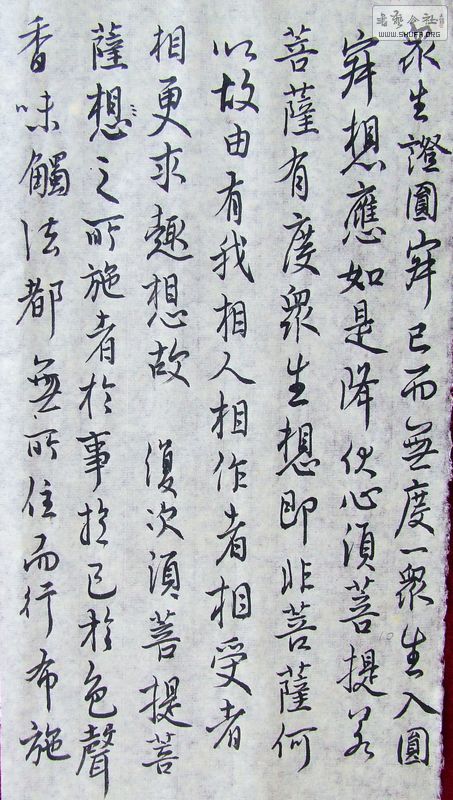 眾生證圓寂已而無度一眾生入圓
寂想應如是降伏心須菩提若
菩薩有度眾生想即非菩薩何
以故由有我相人相作者相受者
相更求趣想故 復次須菩提菩
薩想之所施者於事於已於色聲
香味觸法都無所住而行布施
書藝公社
WWW.SHUFA.ORG